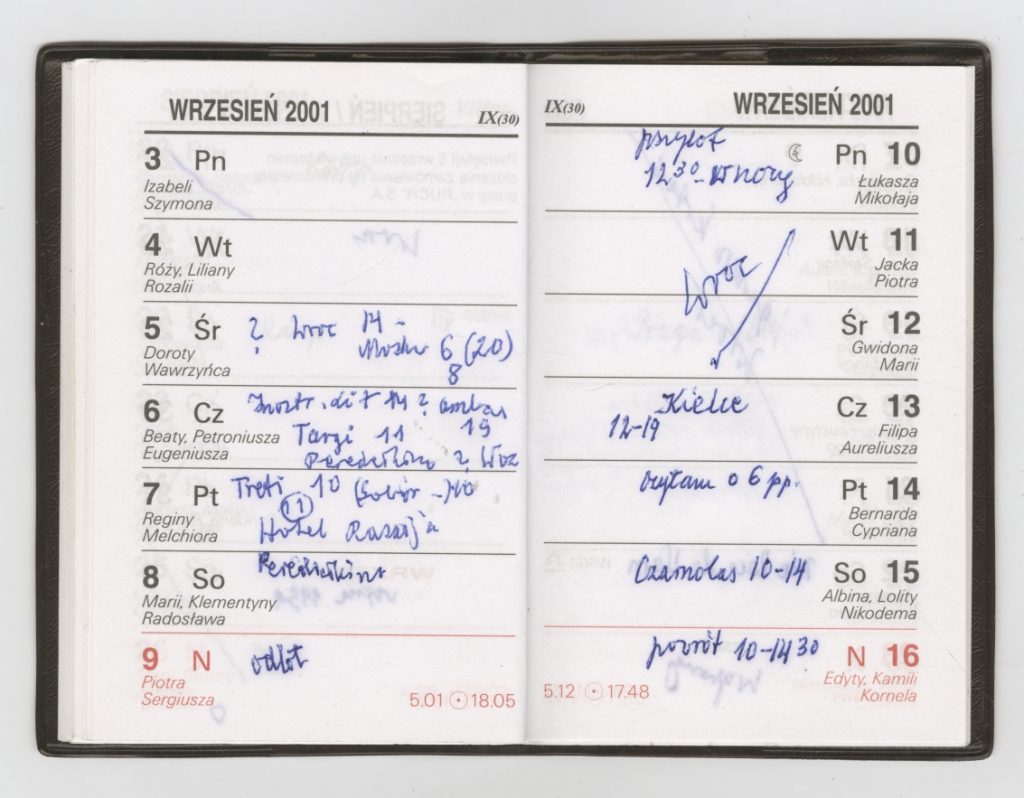 WRZESIEŃ 2001 IX(30)
3 Pn
Izabeli
Szymona
4 Wt
Róży, Liliany
Rozalii
5 Śr ? Wroc 14 -
Doroty 6 (20)
Wawrzyńca 8
6 Cz
Beaty, Petroniusza Targi 11 19
Eugeniusza Pieredielkino ?
7 Pt 10
Reginy 11
Melchiora Hotel Rassija
8 So Pieredielkino
Marii, Klementyny
Radosława
9 N odlot
Piotra
Sergiusza 5.01 18.05
IX(30) WRZESIEŃ 2001
przylot Pn 10
12 30 - Łukasza
Mikołaja
Wt 11
Wroc Jacka
Piotra
Śr 12
Gwidona
Marii
Kielce Cz 13
12-19 Filipa
Aureliusza
czytam o 6 pp. Pt 14
Bernarda
Cypriana
Czarnolas 10-14 So 15
Albina, Lolity
Nikodema
powrót 10-14 30 N 16
Edyty, Kamili
5.12 17.48 Kornela